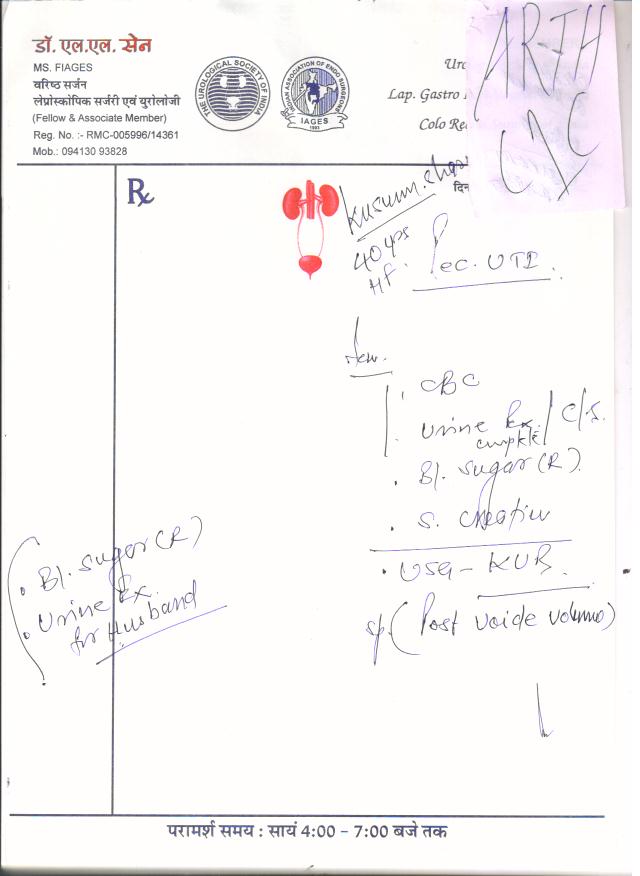 डॉ. एल.एल. सेन
MS. FIAGES
वरिष्ठ सर्जन
लेप्रोस्कोपिक सर्जरी एवं युरोलोजी
(Fellow & Associate Member)
Reg. No. :- RMC-005996/14361
Mob.: 094130 93828
THE UROLOGICAL SOCIETY OF INDIA
INDIAN ASSOCIATION OF ENDO SURGEONS
IAGES
1993
Lap. Gastro
Colo
ARTH
Rx
दिन
Kusum
40 yrs
Rec. UTI
CBC
Urine Ex. / C/S.
complete
Bl. sugar (R)
S. Creatin
USG - KUB
(Post voide volume)
Bl. Sugar (R)
Urine Ex.
for Husband
परामर्श समय : सायं 4:00 - 7:00 बजे तक